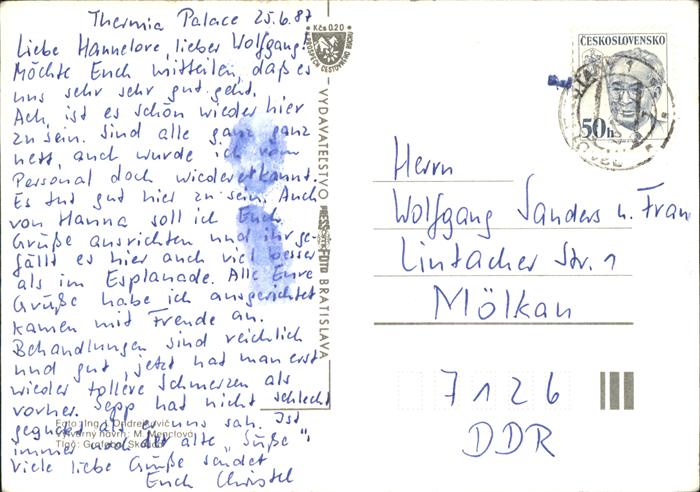 Thermia Palace 25.6.87
Liebe Hannelore, lieber Wolfgang!
Möchte Euch mitteilen, daß es
uns sehr sehr gut geht.
Ach, ist es schön wieder hier
zu sein. Sind alle ganz ganz
nett, auch wurde ich vom
Personal doch wiedererkannt.
Es tut gut hier zu sein. Auch
von Hanna soll ich Euch
Grüße ausrichten und ihr ge-
fällt es hier auch viel besser
als im Esplanade. Alle Eure
Grüße habe ich ausgerichtet
kamen mit Freude an.
Behandlungen sind reichlich
und gut, jetzt hat man erst
wieder tollere Schmerzen als
vorher. Sepp hat nicht schlecht
geguckt als er uns sah. Ist
immer noch der alte „Süße".
Viele liebe Grüße sendet
Euch Christel
Foto: Ing.
Výtvarný návrh: M. Menclová
Tlač:
Kčs 0,20
VYDAVATEĽSTVO
PRESSFOTO
BRATISLAVA
ČESKOSLOVENSKO
50h
Herrn
Wolfgang Sanders u. Frau
Lintacher Str. 1
Mölkau
7126
DDR